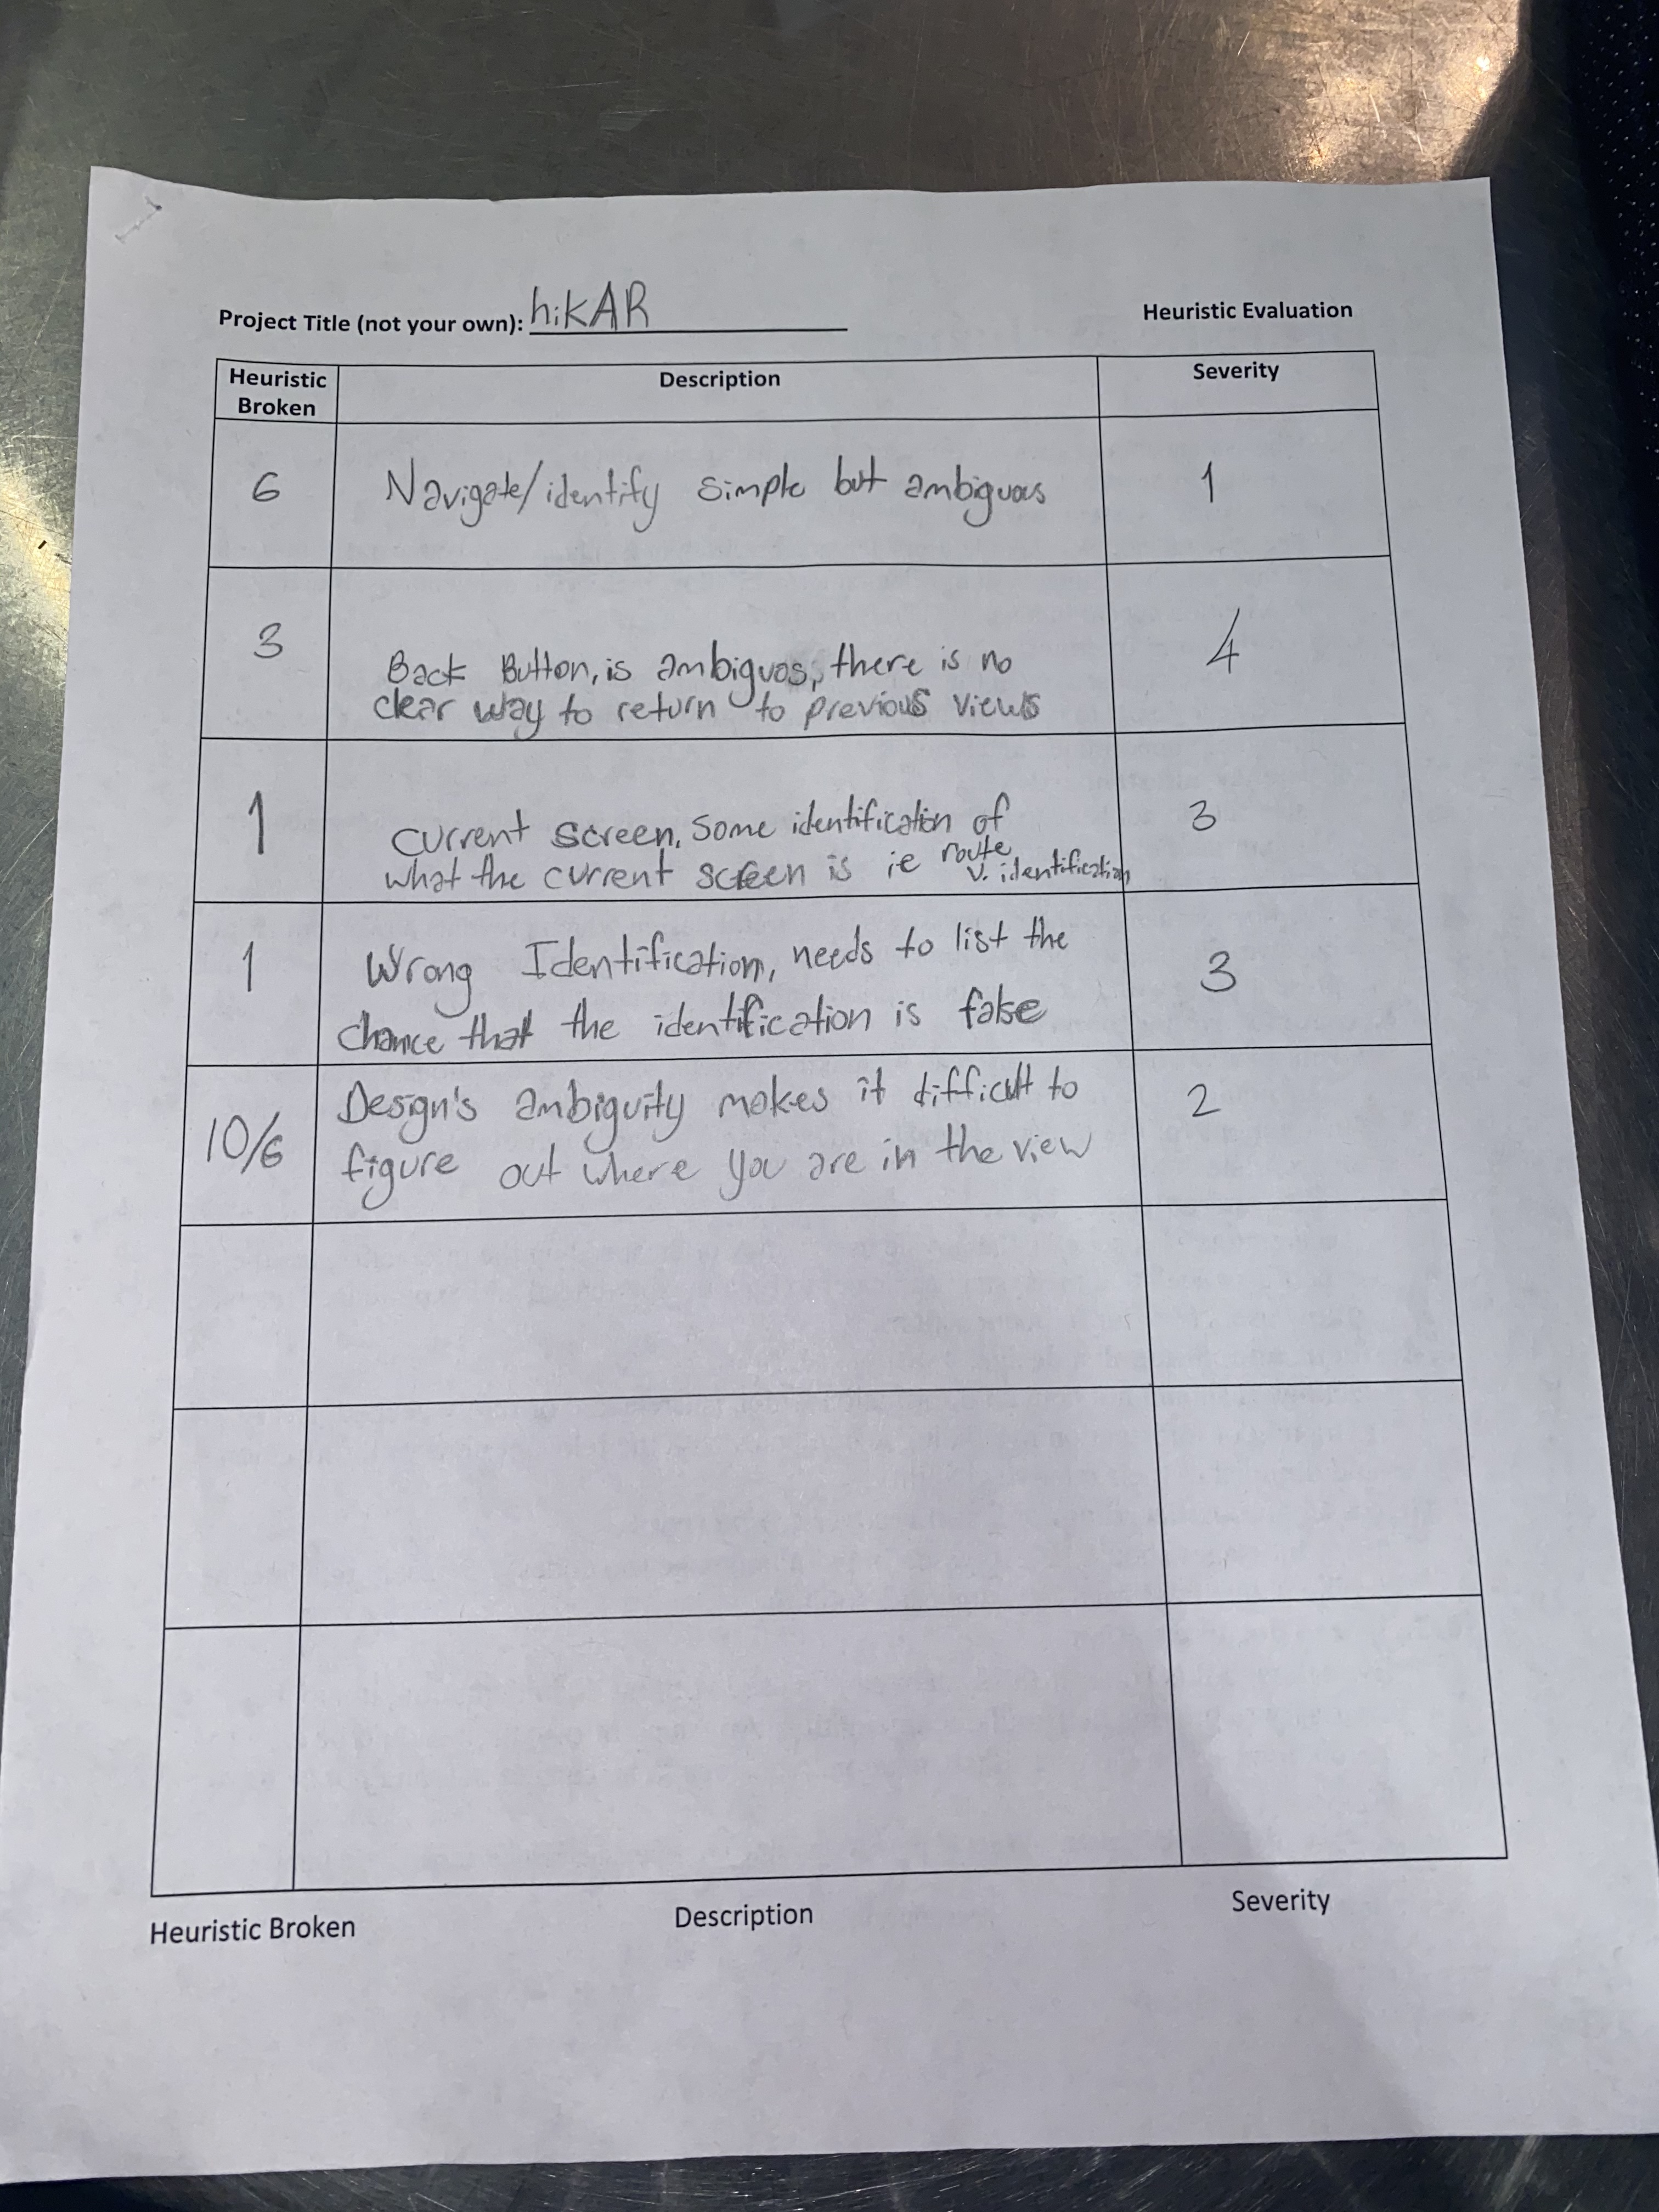 Project Title (not your own): hikAR
Heuristic Evaluation
Heuristic Broken
Description
Severity
6
Navigate/identify simple but ambiguous
1
3
Back Button, is ambiguos, there is no
clear way to return to previous views
4
1
current screen, some identification of
what the current screen is ie route
v. identification
3
1
Wrong Identification, needs to list the
chance that the identification is false
3
10/6
Design's ambiguity makes it difficult to
figure out where you are in the view
2
Heuristic Broken
Description
Severity